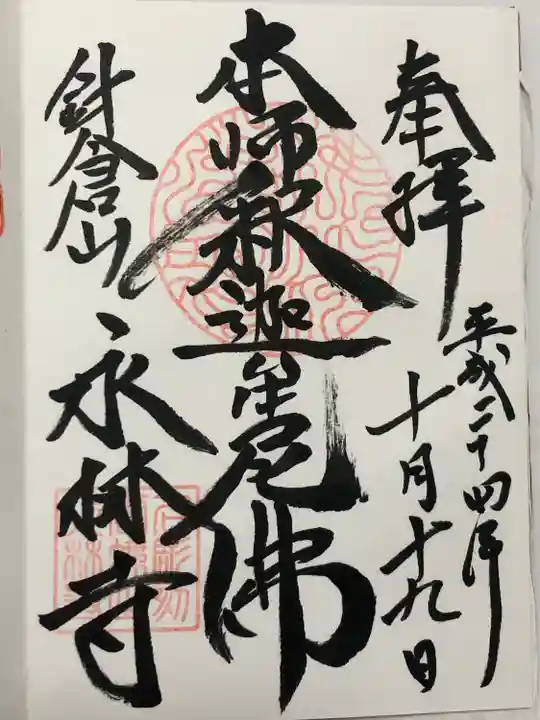 奉拝
平成二十四年
十月十九日
本師釈迦牟尼佛
針倉山
永林寺